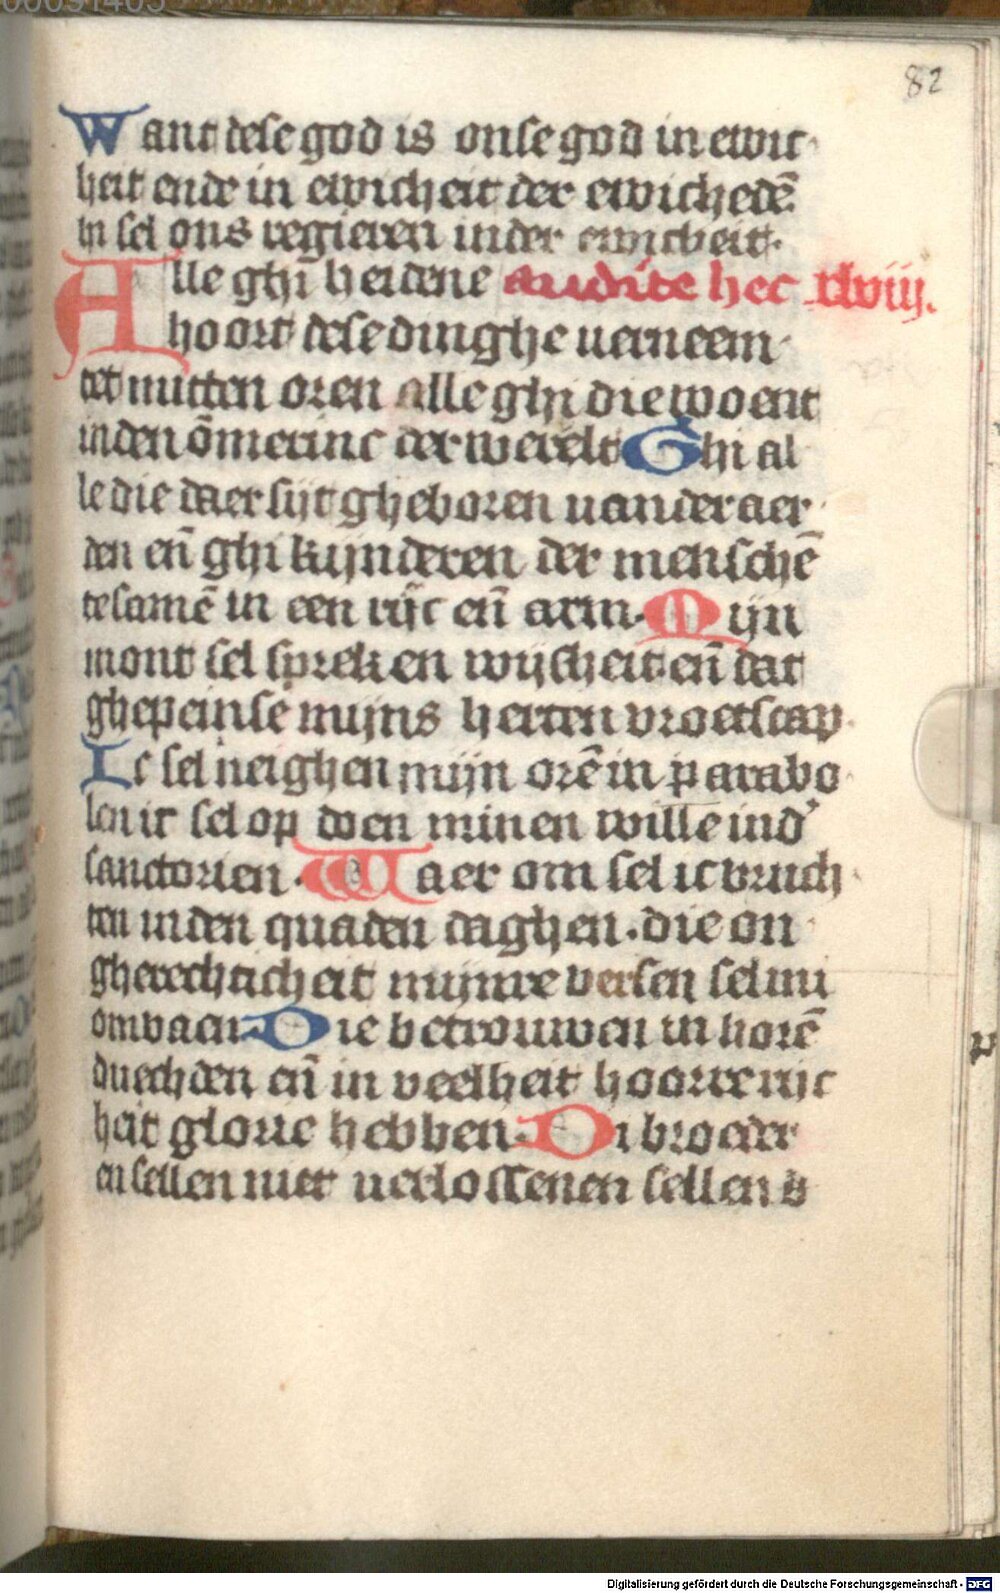 82
Want dese god is onse god in ewic
heit ende in ewicheit der ewichedē
hi sel ons regieren inder ewicheit.
Alle ghi heidene audite hec xlviij.
hoort dese dinghe verneem
tet mitten oren alle ghi die woent
inden ōmerinc der werelt Ghi al
le die daer sijt gheboren vander aer
den eñ ghi kijnderen der menschē
tesamē in een rijc eñ arm. Mijn
mont sel spreken wijsheit eñ dat
ghepeinse mijns herten vroetscap
Ic sel neighen mijn orē in parabo
len ic sel op doen minen wille ind'
sanctorien. Waer om sel ic vruch
ten inden quaden daghen. die on
gherechticheit mijnre versen sel mi
omvaen Die betrouwen in horē
duechden eñ in veelheit hoorre rijc
heit glorie hebben. Di broeder
en sellen niet verlossenen sellen
Digitalisierung gefördert durch die Deutsche Forschungsgemeinschaft - DFG